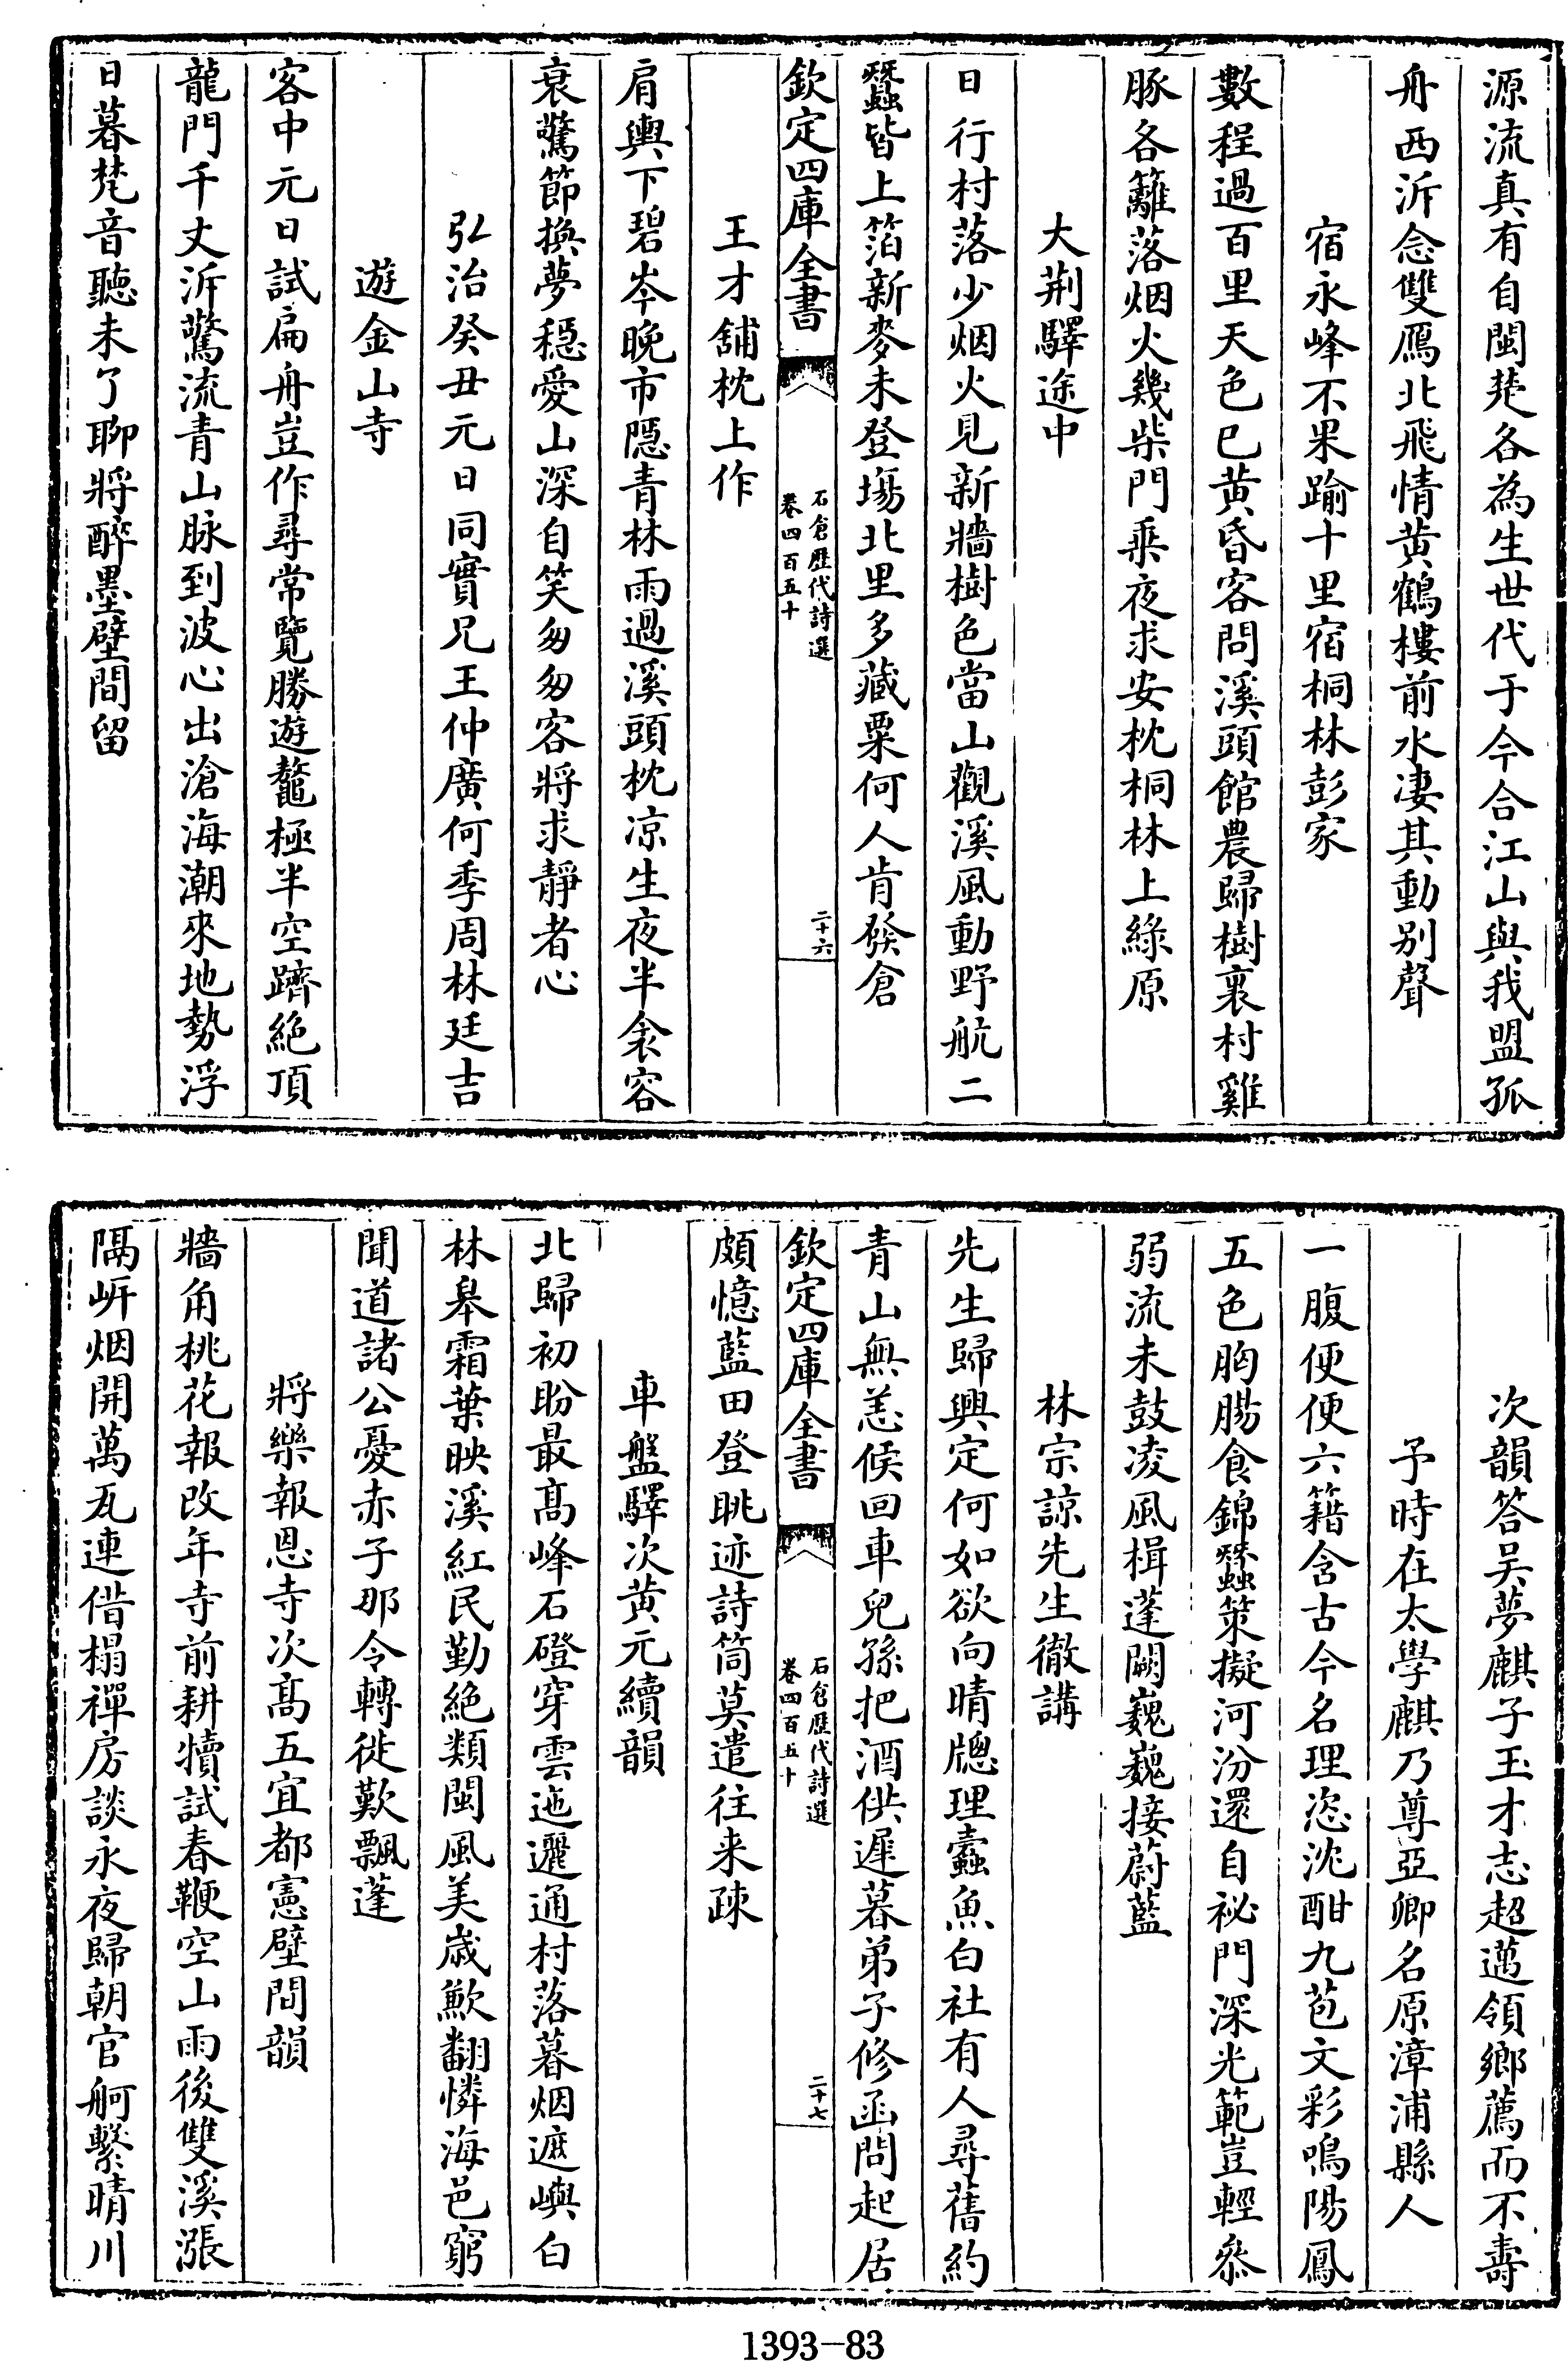 源流真有自閩楚各為生世代于今合江山與我盟孤
舟西泝念雙鴈北飛情黄鶴樓前水凄其動别聲
宿永峰不果踰十里宿桐林彭家
數程過百里天色已黄昏客問溪頭館農歸樹裏村雞
豚各籬落烟火幾柴門乗夜求安枕桐林上綠原
大荆驛途中
日行村落少烟火見新牆樹色當山觀溪風動野航二
蠶皆上箔新麥未登場北里多藏粟何人肯發倉
欽定四庫全書
石倉歷代詩選
卷四百五十
二十六
王才舖枕上作
肩輿下碧岑晚市隱青林雨過溪頭枕凉生夜半衾容
衰驚節換夢穏愛山深自笑匆匆客將求靜者心
弘治癸丑元日同實兄王仲廣何季周林廷吉
遊金山寺
客中元日試扁舟豈作尋常覽勝遊鼇極半空躋絶頂
龍門千丈泝驚流青山脉到波心出滄海潮來地勢浮
日暮梵音聽未了聊將醉墨壁間留
次韻答吴夢麒子玉才志超邁領鄉薦而不壽
予時在太學麒乃尊亞卿名原漳浦縣人
一腹便便六籍含古今名理恣沈酣九苞文彩鳴陽鳳
五色胸腸食錦蠶策擬河汾還自祕門深光範豈輕叅
弱流未鼓凌風楫蓬闕巍巍接蔚藍
林宗諒先生徹講
先生歸興定何如欲向晴牕理蠹魚白社有人尋舊約
青山無恙候回車兒孫把酒供遲暮弟子修函問起居
欽定四庫全書
石倉歷代詩選
卷四百五十
二十七
頗憶藍田登眺迹詩筒莫遣往来疎
車盤驛次黄元續韻
北歸初盼最髙峰石磴穿雲迤邐通村落暮烟遮嶼白
林皋霜葉映溪紅民勤絶類閩風美歳歉翻憐海邑窮
聞道諸公憂赤子那令轉徙歎飄蓬
將樂報恩寺次髙五宜都憲壁間韻
牆角桃花報改年寺前耕犢試春鞭空山雨後雙溪漲
隔岍烟開萬瓦連借榻禪房談永夜歸朝官舸繫晴川
1393-83